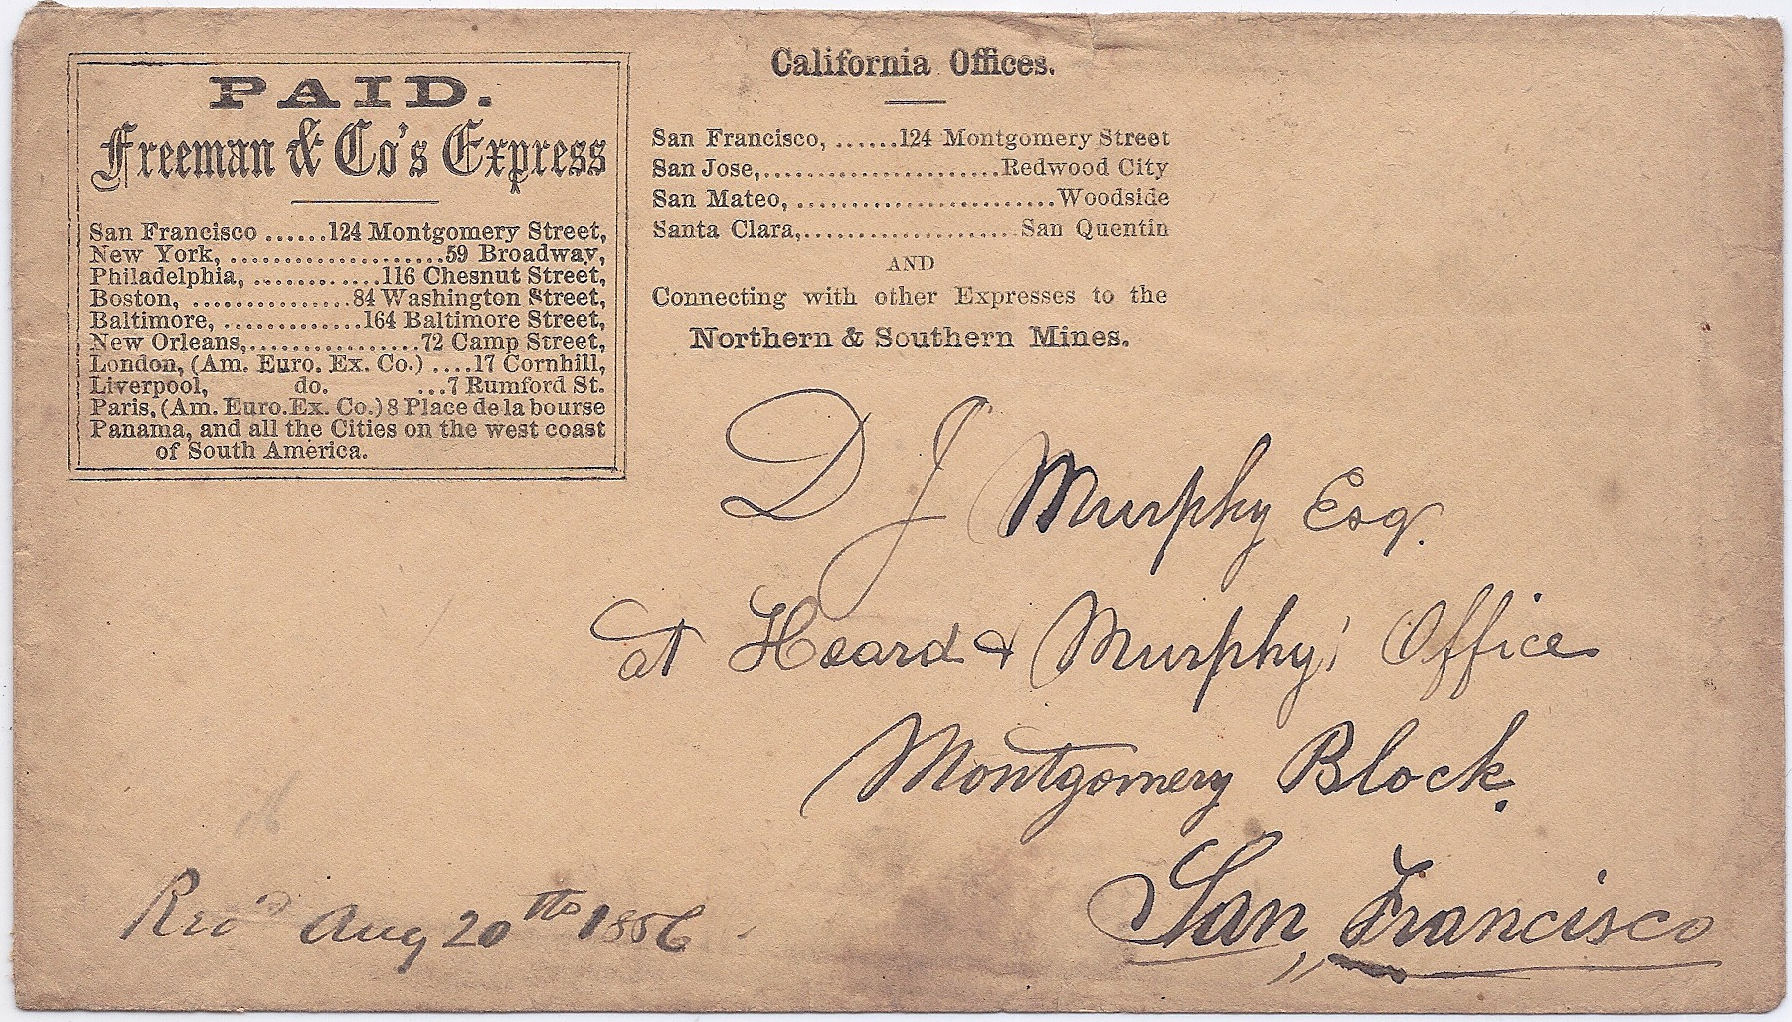 PAID.
Freeman & Co's Express
San Francisco ......124 Montgomery Street,
New York, .....................59 Broadway,
Philadelphia, ............116 Chesnut Street,
Boston, ................84 Washington Street,
Baltimore, .............164 Baltimore Street,
New Orleans,.................72 Camp Street,
London, (Am. Euro. Ex. Co.) ....17 Cornhill,
Liverpool, do. ...7 Rumford St.
Paris, (Am. Euro. Ex. Co.) 8 Place de la bourse
Panama, and all the Cities on the west coast
of South America.
California Offices.
San Francisco, ......124 Montgomery Street
San Jose,.......................Redwood City
San Mateo, .........................Woodside
Santa Clara,.....................San Quentin
AND
Connecting with other Expresses to the
Northern & Southern Mines.
D J Murphy Esq.
at Heard & Murphy' Office
Montgomery Block.
San Francisco
Rec'd Aug 20th 1856